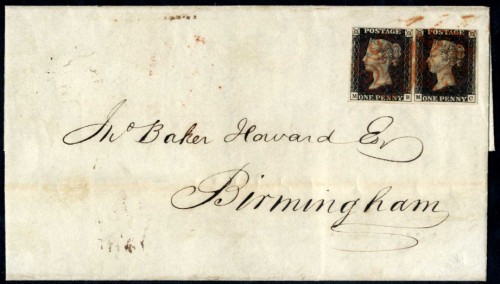 POSTAGE POSTAGE
ONE PENNY ONE PENNY
Jno Baker Howard Esr
Birmingham